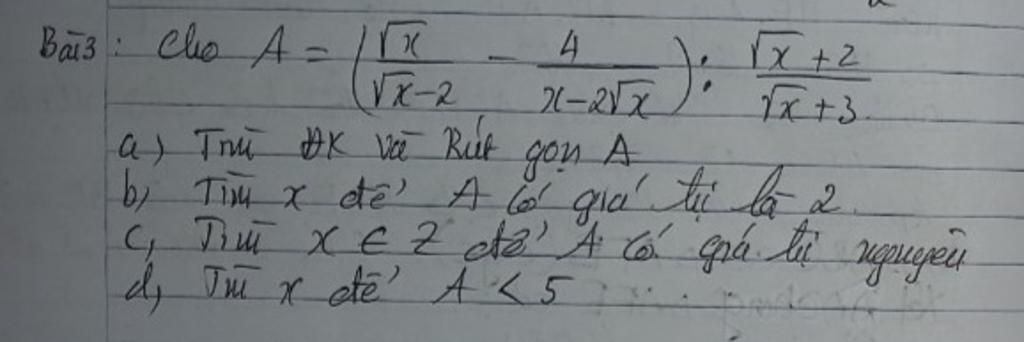 Bài 3: Cho A = (√x/(√x-2) - 4/(x-2√x)) : (√x+2)/(√x+3)
a) Tìm ĐK và Rút gọn A
b, Tìm x để A có giá trị là 2
c, Tìm x ∈ Z để A có giá trị nguyên
d, Tìm x để A < 5